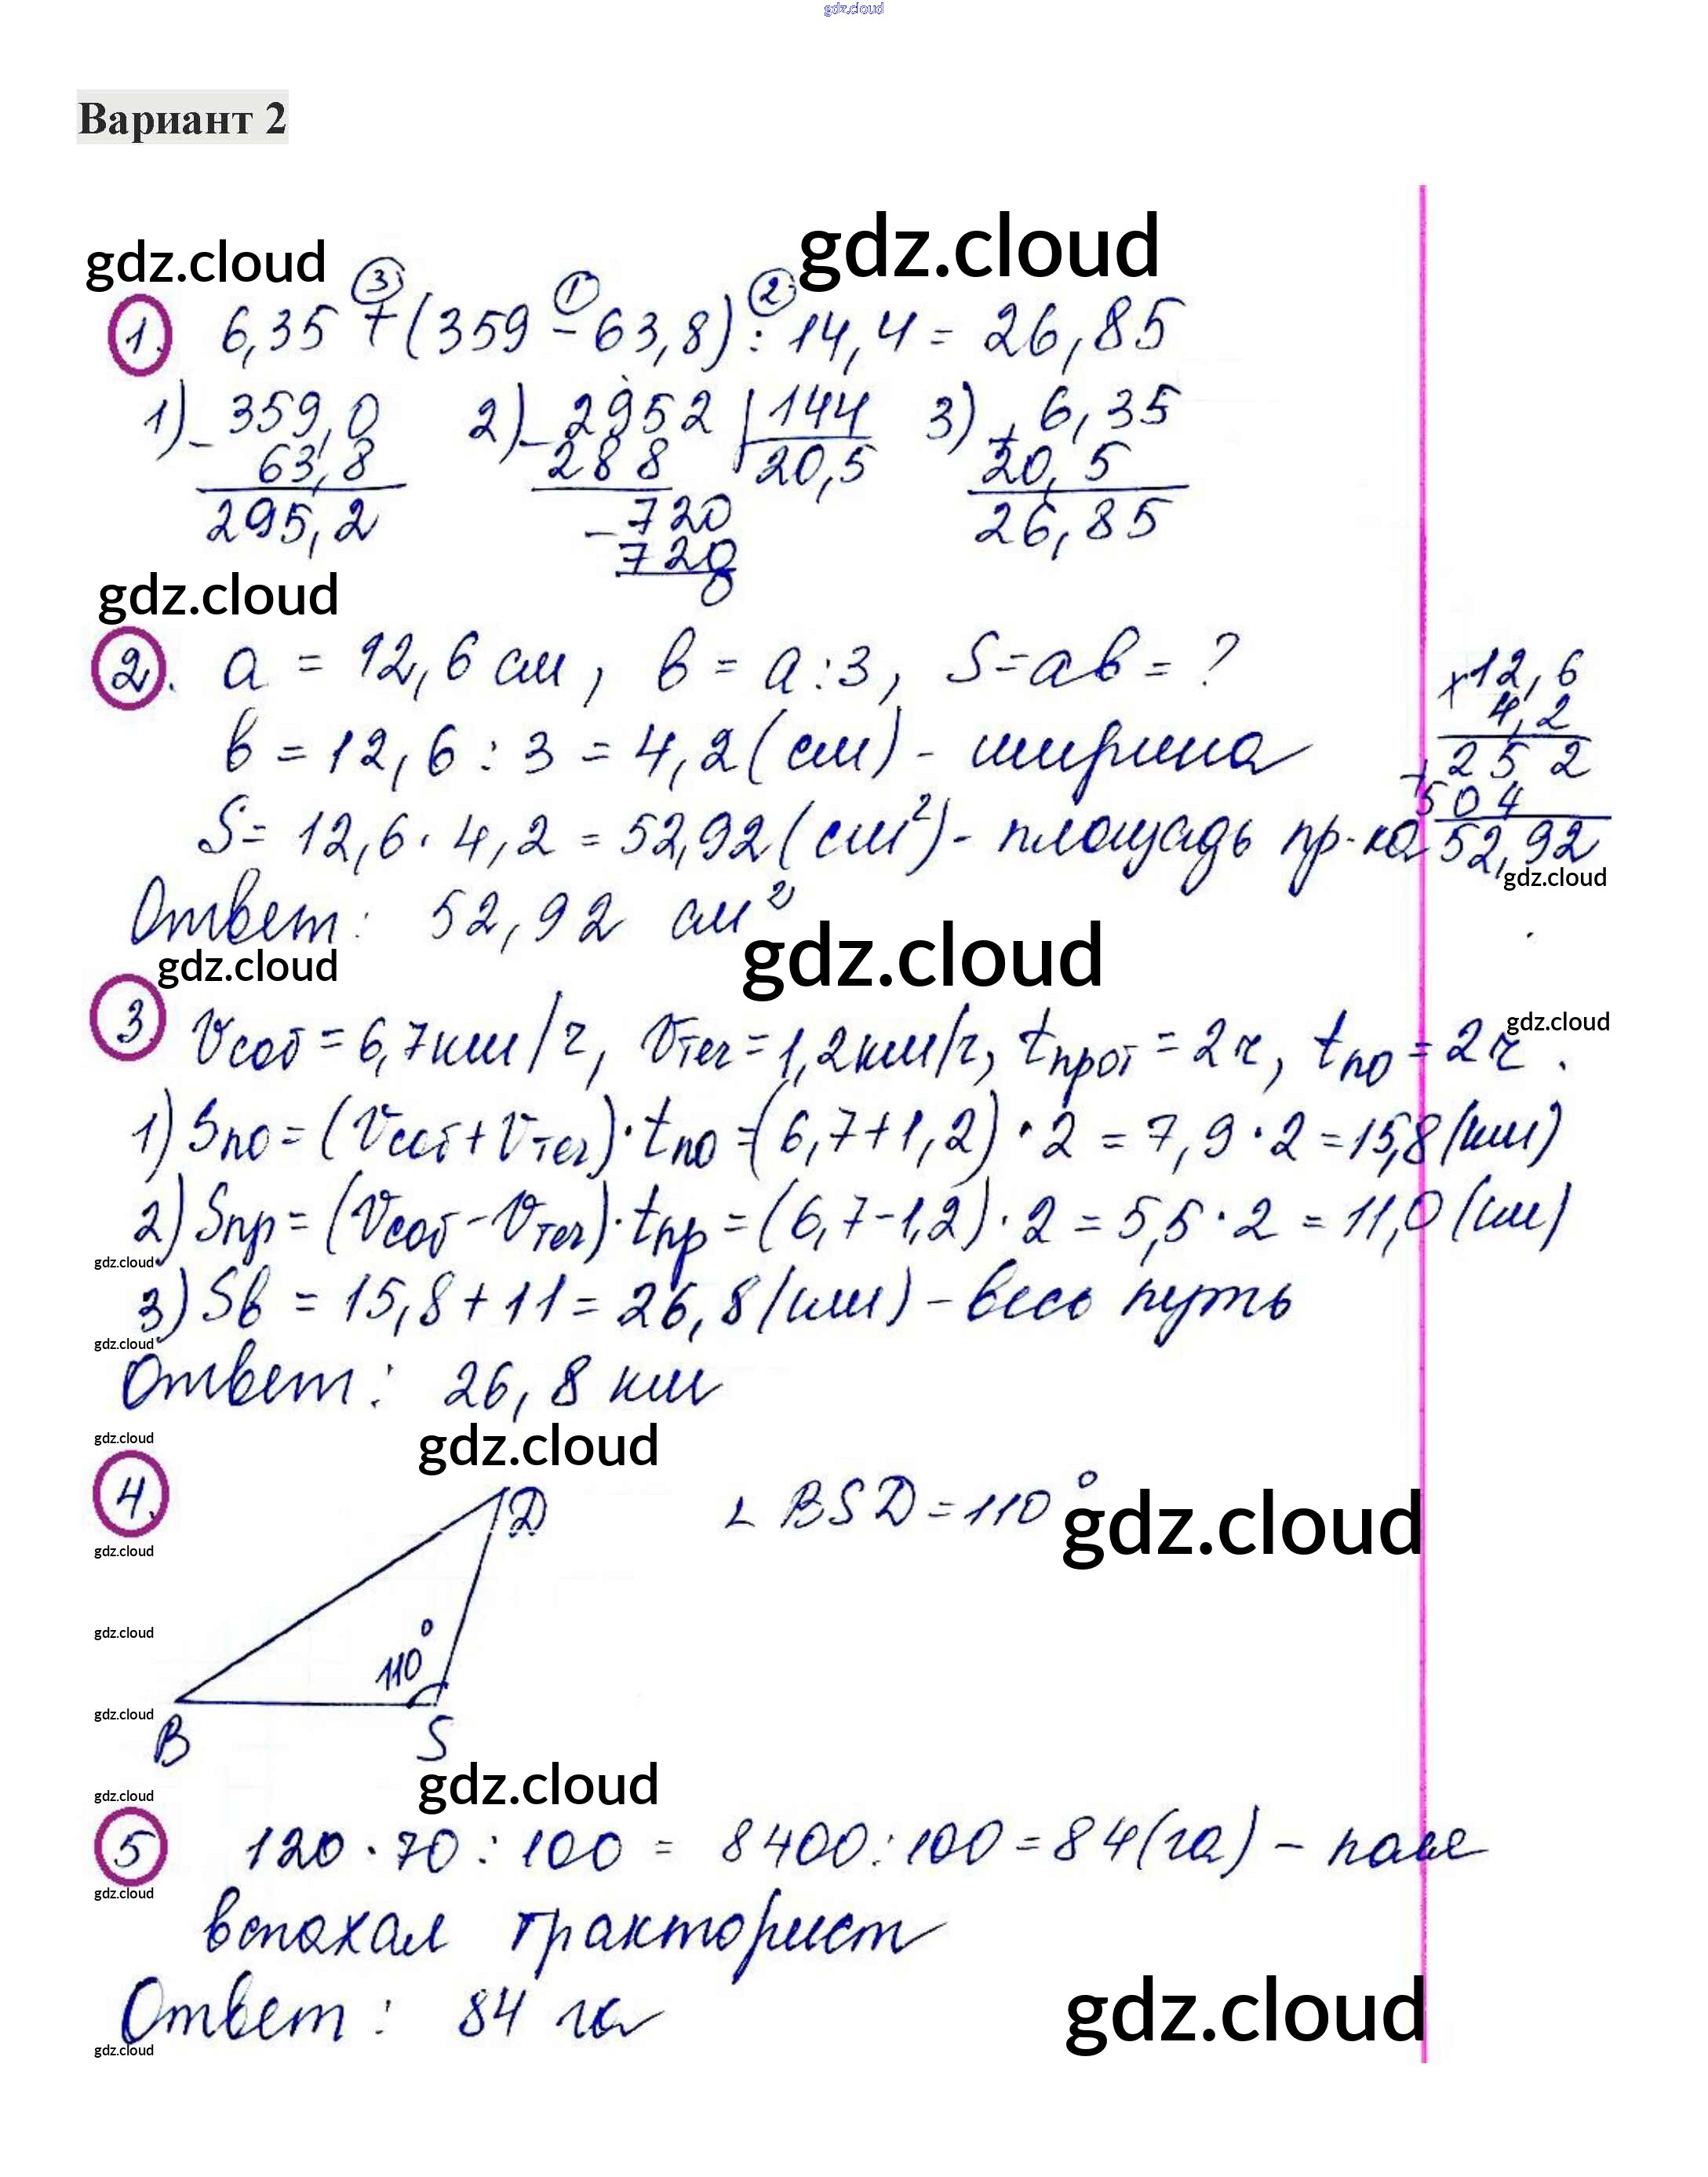 gdz.cloud
Вариант 2
gdz.cloud
gdz.cloud
③ ① ②
1. 6,35 + (359 - 63,8) : 14,4 = 26,85
1) - 359,0 2) - 2952 | 144 3) + 6,35
63,8 288 20,5 20,5
295,2 - 720 26,85
720
0
gdz.cloud
2. a = 12,6 см, в = a : 3, S = aв = ? × 12,6
4,2
в = 12,6 : 3 = 4,2 (см) - ширина + 252
504
S = 12,6 · 4,2 = 52,92 (см²) - площадь пр-ка 52,92
gdz.cloud
Ответ: 52,92 см²
gdz.cloud
gdz.cloud
3. Vсоб = 6,7 км/ч, Vтеч = 1,2 км/ч, tпрот = 2 ч, tпо = 2 ч.
gdz.cloud
1) Sпо = (Vсоб + Vтеч) · tпо = (6,7 + 1,2) · 2 = 7,9 · 2 = 15,8 (км)
2) Sпр = (Vсоб - Vтеч) · tпр = (6,7 - 1,2) · 2 = 5,5 · 2 = 11,0 (км)
gdz.cloud
3) Sв = 15,8 + 11 = 26,8 (км) - весь путь
gdz.cloud
Ответ: 26,8 км
gdz.cloud
gdz.cloud
4. D ∠ BSD = 110°
gdz.cloud
gdz.cloud
gdz.cloud
110°
gdz.cloud
B S
gdz.cloud
gdz.cloud
5 120 · 70 : 100 = 8400 : 100 = 84 (га) - поле
gdz.cloud
вспахал тракторист
Ответ: 84 га
gdz.cloud
gdz.cloud